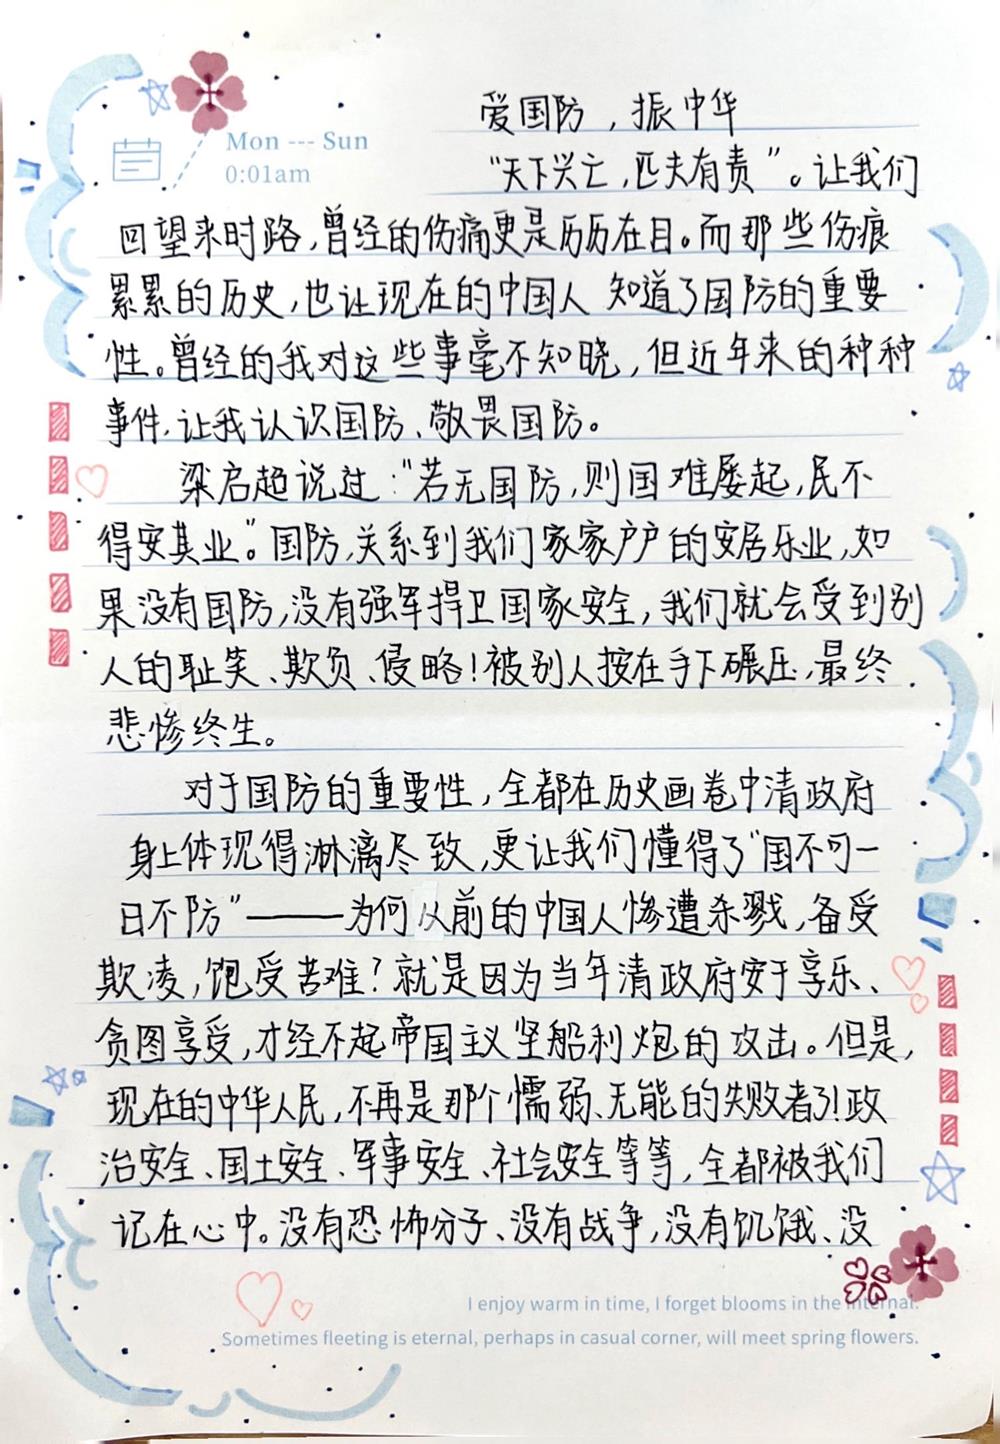 爱国防，振中华
Mon --- Sun
0:01am
“天下兴亡，匹夫有责”。让我们
回望来时路，曾经的伤痛更是历历在目。而那些伤痕
累累的历史，也让现在的中国人 知道了国防的重要
性。曾经的我对这些事毫不知晓，但近年来的种种
事件，让我认识国防、敬畏国防。
梁启超说过：“若无国防，则国难屡起，民不
得安其业”。国防，关系到我们家家户户的安居乐业，如
果没有国防，没有强军捍卫国家安全，我们就会受到别
人的耻笑、欺负、侵略！被别人按在手下碾压，最终
悲惨终生。
对于国防的重要性，全都在历史画卷中清政府
身上体现得淋漓尽致，更让我们懂得了“国不可一
日不防”——为何从前的中国人惨遭杀戮，备受
欺凌，饱受苦难？就是因为当年清政府安于享乐、
贪图享受，才经不起帝国主义坚船利炮的攻击。但是，
现在的中华人民，不再是那个懦弱、无能的失败者了！政
治安全、国土安全、军事安全、社会安全等等，全都被我们
记在心中。没有恐怖分子、没有战争，没有饥饿、没
I enjoy warm in time, I forget blooms in the internal.
Sometimes fleeting is eternal, perhaps in casual corner, will meet spring flowers.